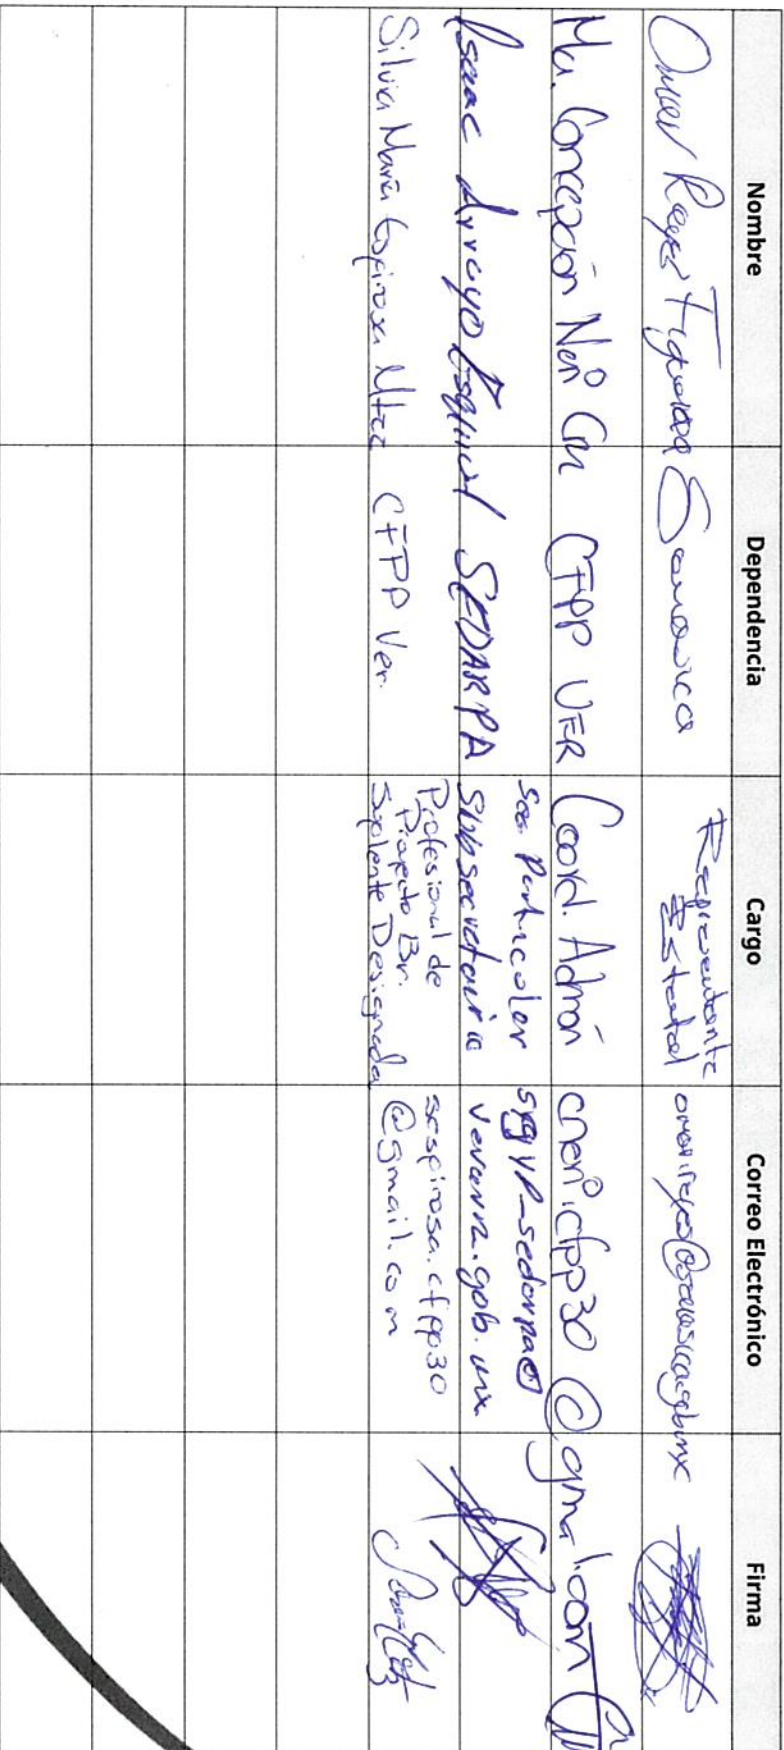 Nombre Dependencia Cargo Correo Electrónico Firma
Omar Reyes Figueroa Representante Estatal
Ma. Concepción Neri Cfpp VER Coord. Admón cneri.cfpp30@gmail.com
Isaac Arroyo Esquivel SEDARPA Sec. Particular
Subsecretaría veracruz.gob.mx
Silvia María Espinosa Mtez CFPP Ver. Profesional de
Proyecto Br.
Suplente Designada
sespinosa.cfpp30
@gmail.com